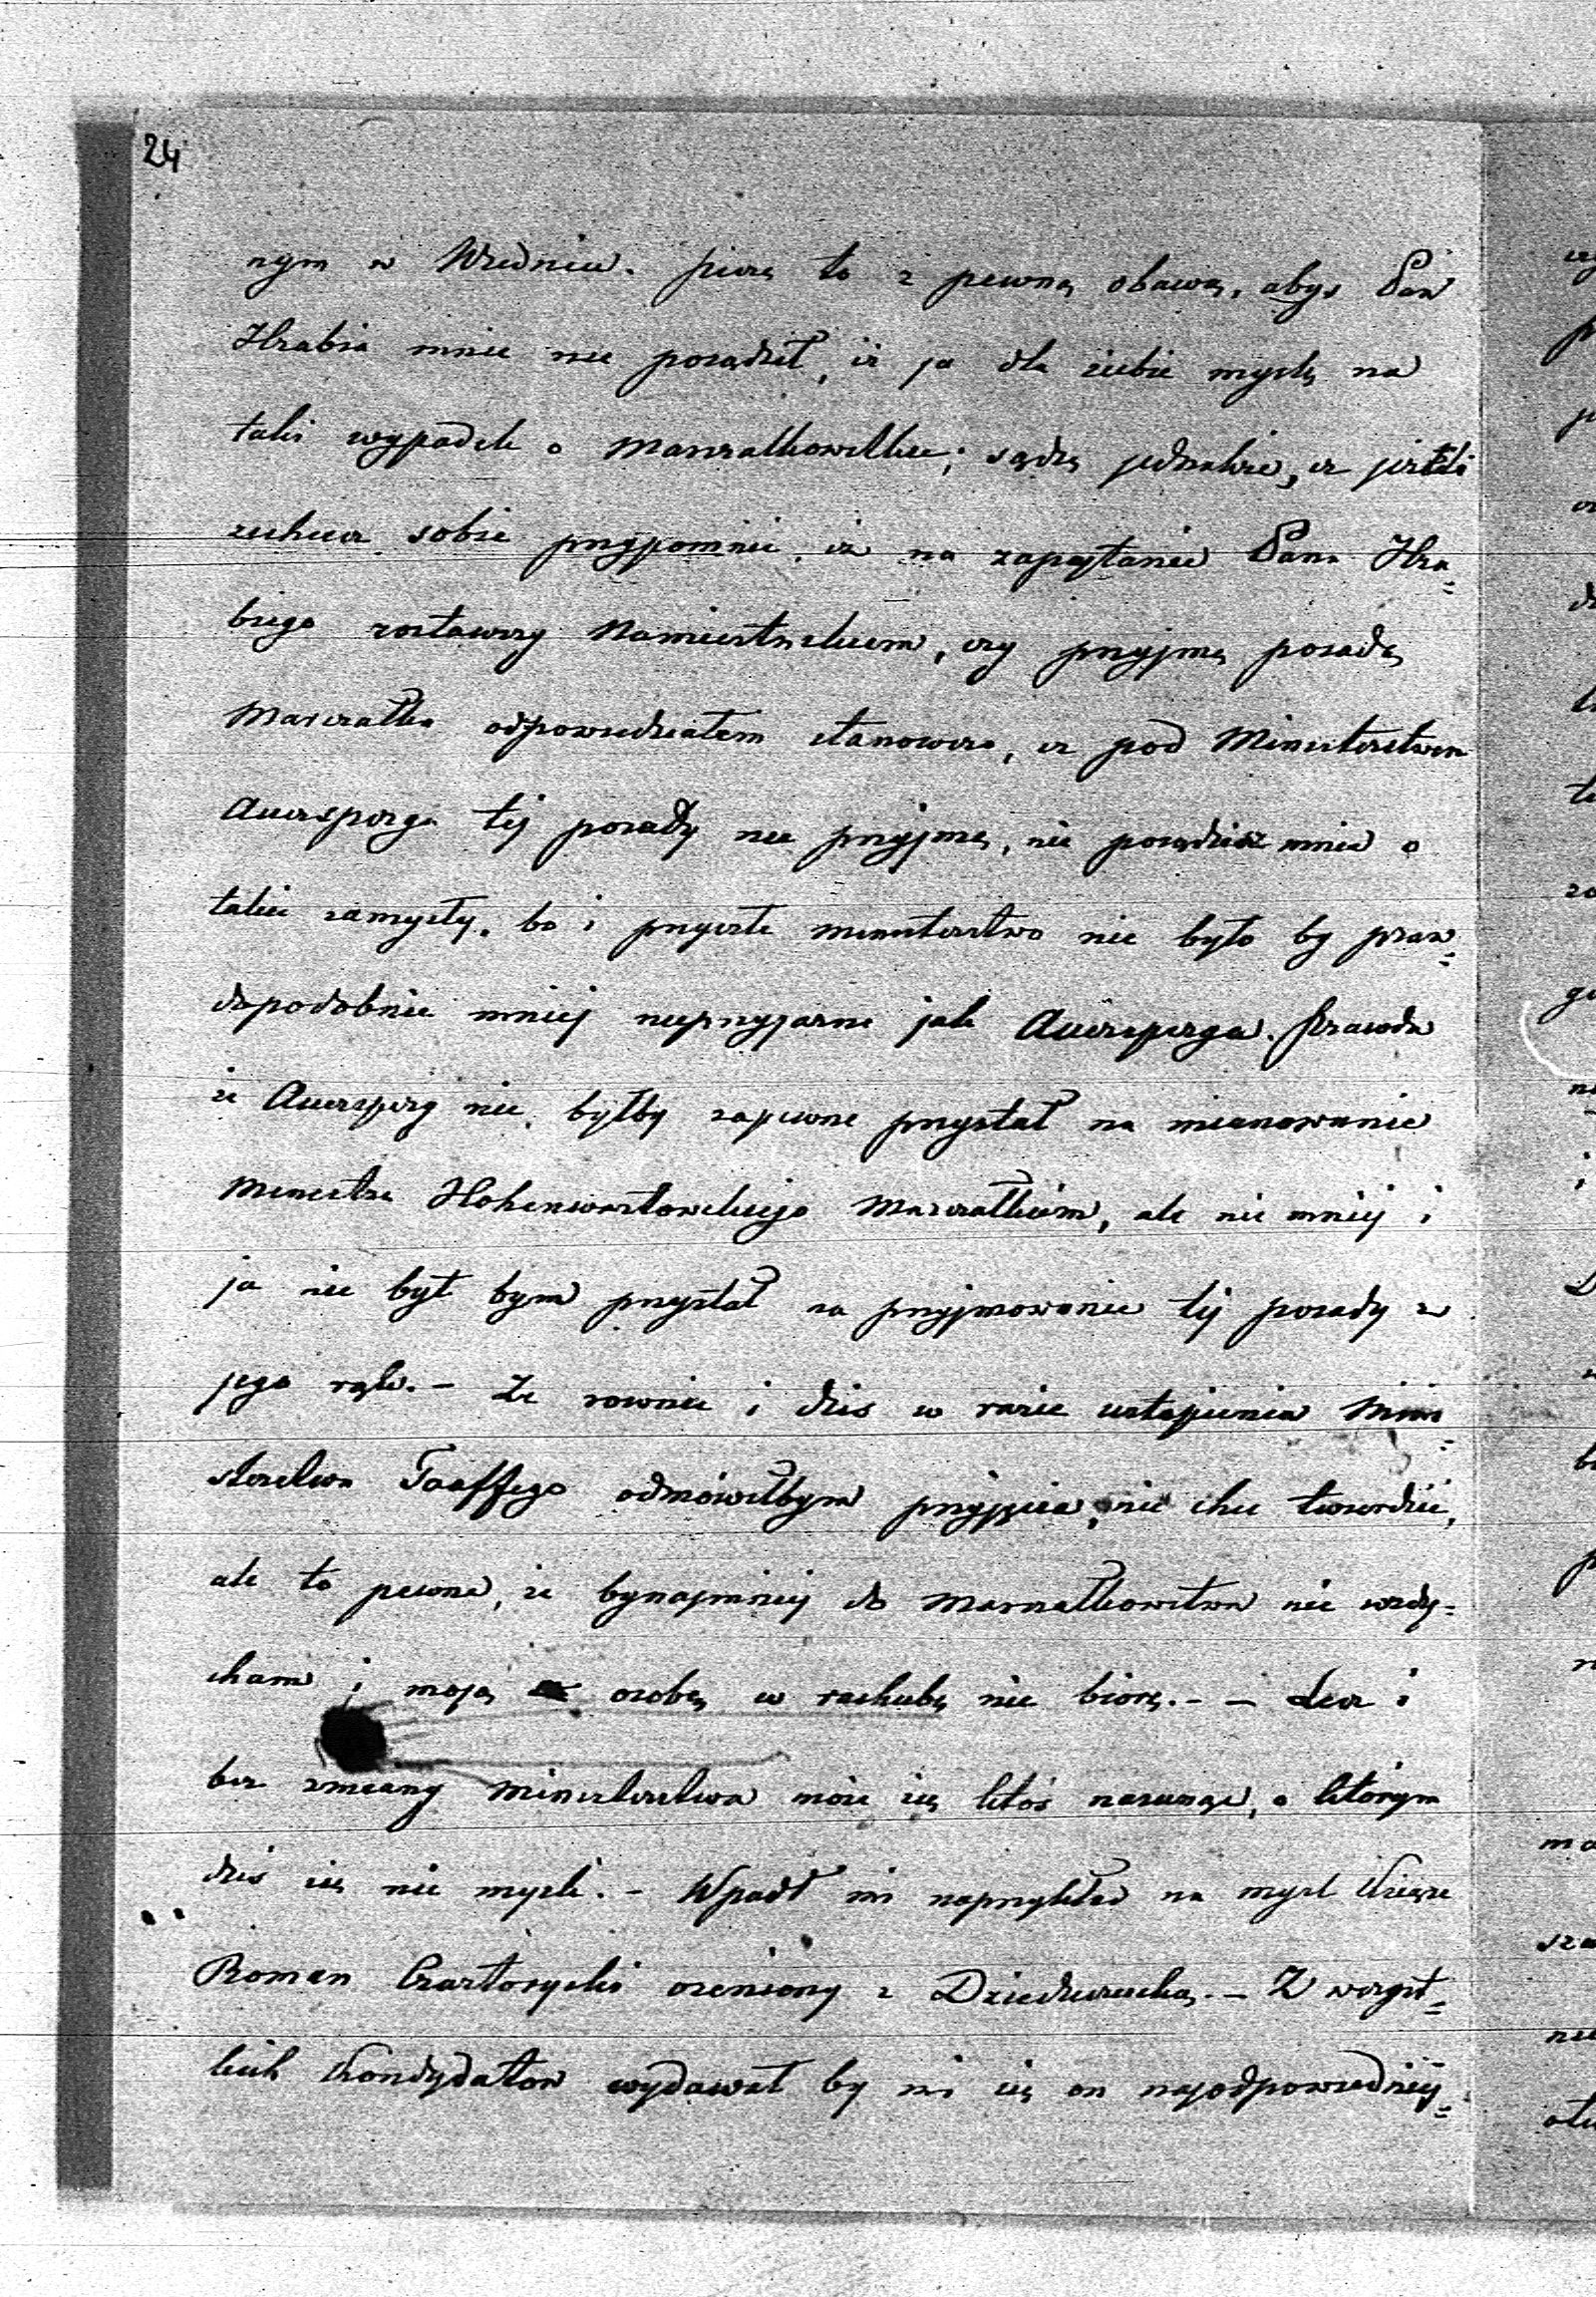 24
nym w Wiedniu. Piszę to z pewną obawą, abyś Pan
Hrabia mnie nie posądził, iż ja dla siebie myślę na
taki wypadek o Marszałkowstwie; sądzę jednakże, iż jeżeli
zechcesz sobie przypomnieć, iż na zapytanie Pana Hra=
biego zostawszy Namiestnikiem, czy przyjmę posadę
Marszałka odpowiedziałem stanowczo, iż pod Ministerstwem
Auersperga tej posady nie przyjmę, nie posądzisz mnie o
takie zamysły, bo i przyszłe ministerstwo nie było by praw=
dopodobnie mniej nieprzyjazne jak Auersperga. Prawda
że Auersperg nie byłby zapewne przystał na mianowanie
Ministra Hohenwartowskiego Marszałkiem, ale nie mniej i
ja nie był bym przystał na przyjmowanie tej posady z
jego rąk. – Że rownie i dziś w razie ustąpienia Mini=
sterstwa Taaffego odmówiłbym przyjęcia, nie chcę twierdzić,
ale to pewne, że bynajmniej do Marszałkowstwa nie wzdy=
cham i moją osobę w rachubę nie biorę. – – Lecz i
bez zmiany Ministerstwa może się ktoś nasunąć, o którym
dziś się nie myśli. – Wpadł mi naprzykład na myśl Książe
Roman Czartoryski ożeniony z Dzieduszycką. – Z wszyst=
kich Kondydatow wydawał by mi się on najodpowiedniej=